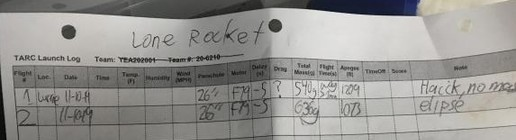 Lone Rocket
TARC Launch Log Team: TEA202001 Team #: 20-6210
Flight # Loc. Date Time Temp. (F) Humidity Wind (MPH) Parachute Motor Delay (s) Drag Total Mass(g) Flight Time(s) Apogee (ft) Note
1 11-10-19 26" F79 -5 ? 540g 1209 no mas
2 11-10-19 26" F79 -5 636g 1073 elipse